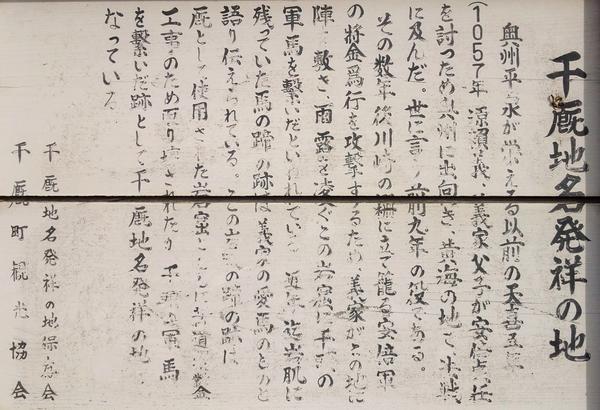 千厩地名発祥の地
奥州平泉が栄える以前の天喜五年
(1057年 源頼義、義家父子が安倍貞任
を討つため奥州に出向き、黄海の地で
に及んだ。世に言う前九年の役である。
その数年後川崎の柵に立て籠る安倍軍
の将金為行を攻撃するため義家がこの地に
陣を敷き、雨露を凌ぐこの岩窟に千 の
軍馬を繋いだといわれている 近年迄岩肌に
残っていた馬の蹄の跡は義家の愛馬のものと
語り伝えられている。この の蹄の跡は
厩として使用された岩窟とともに 道
工事のため取り壊されたが 千 の軍馬
を繋いだ跡として千厩地名発祥の地
なっている
千厩地名発祥の地保存会
千厩町観光協会